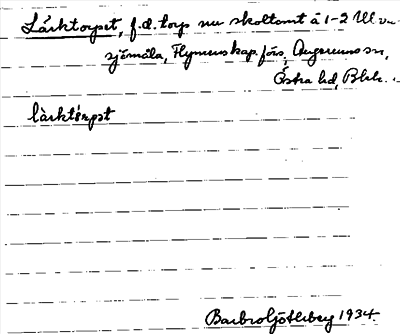 Lärktorpet, f.d. torp nu skoltomt å 1-2 Ul
sjömåla, Flymens kap. förs, Augerums sn,
Östra hd, Blek.
lärktórpət
Barbro Götherberg 1934.